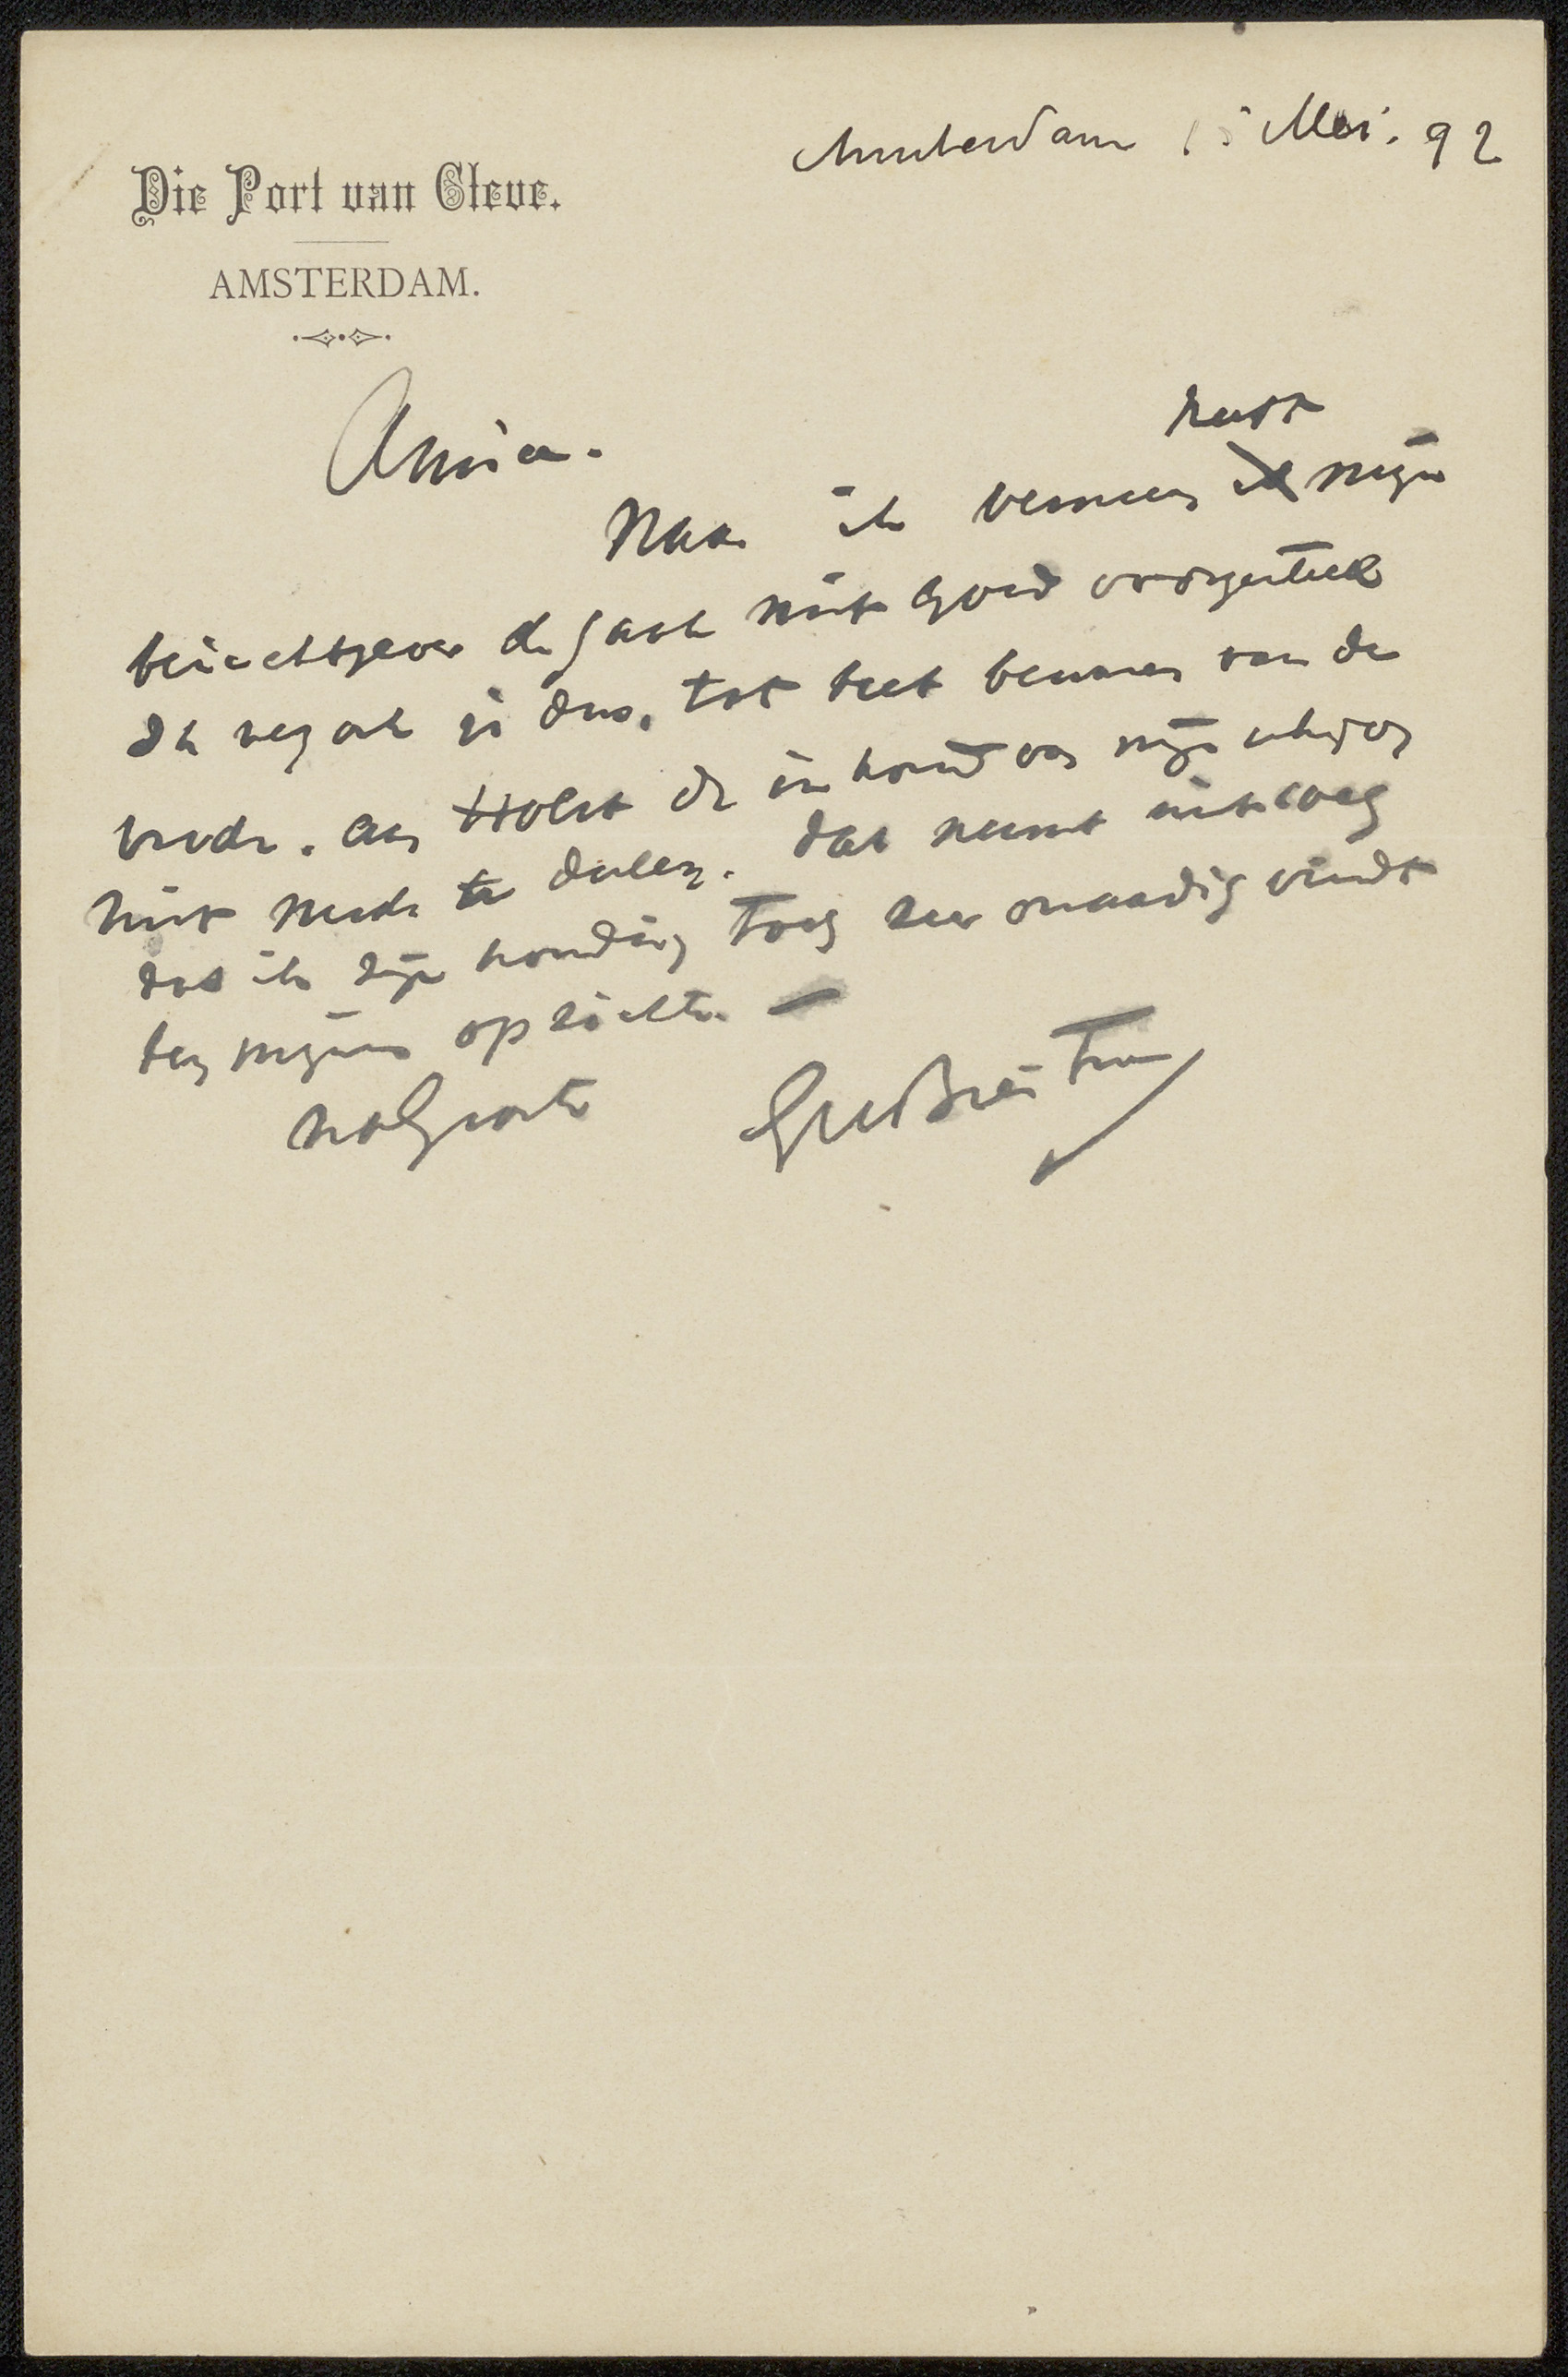 Amsterdam 15 Mei. 92
Die Port van Cleve.
AMSTERDAM.
Amice.
heeft
Naar ik verneem mijn
berichtgever de zaak niet goed voorgesteld
Ik verzoek je dus, tot het bewaren van de
vrede. aan Holst de inhoud van mijn schrijven
niet mede te deelen. dat neemt niet weg
dat ik zijn houding toch zeer onaardig vindt
ten mijnen opzichte —
nagroete GHBreitner